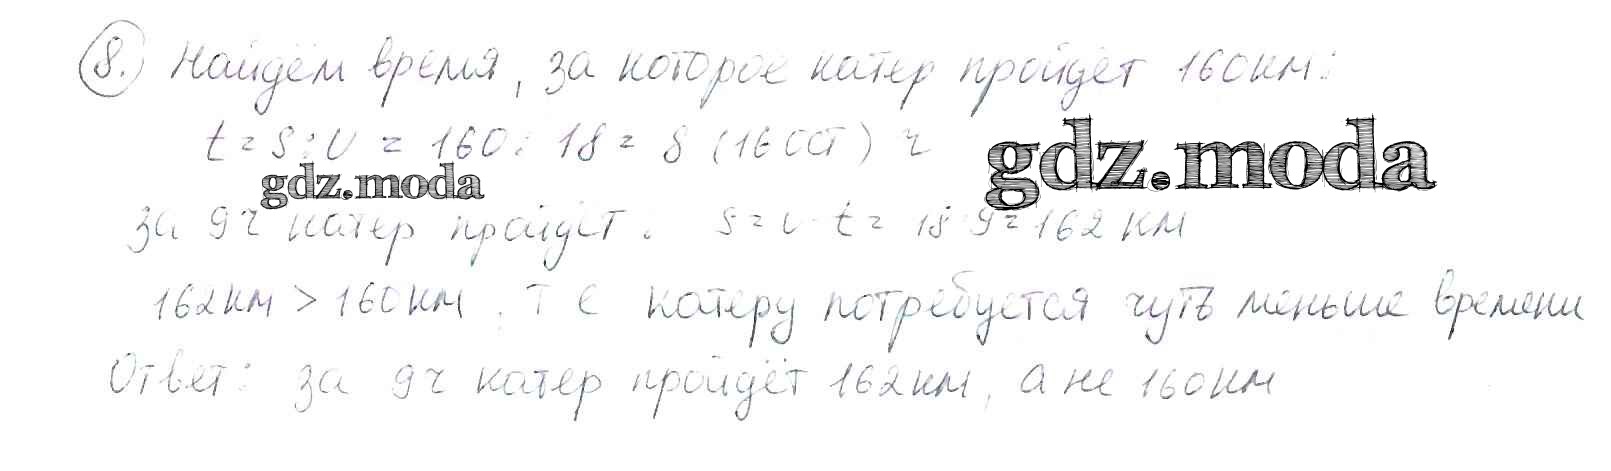 8. Найдём время, за которое катер пройдёт 160км:
t = S : υ = 160 : 18 = 8 (16 ост) ч
gdz.moda
gdz.moda
за 9ч катер пройдёт: S = υ · t = 18 · 9 = 162 км
162км > 160км. Т Е катеру потребуется чуть меньше времени
Ответ: за 9ч катер пройдёт 162км, а не 160км